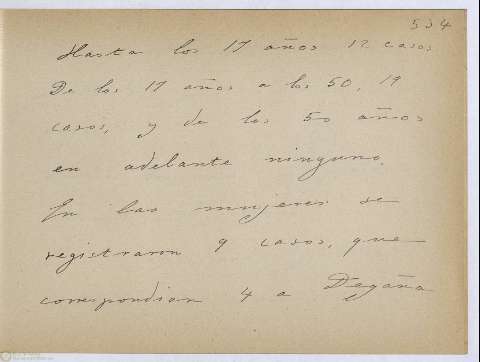 534
Hasta los 17 años 12 casos
De los 17 años a los 50, 19
casos, y de los 50 años
en adelante ninguno.
En las mujeres se
registraron 9 casos, que
correspondian 4 a Degaña